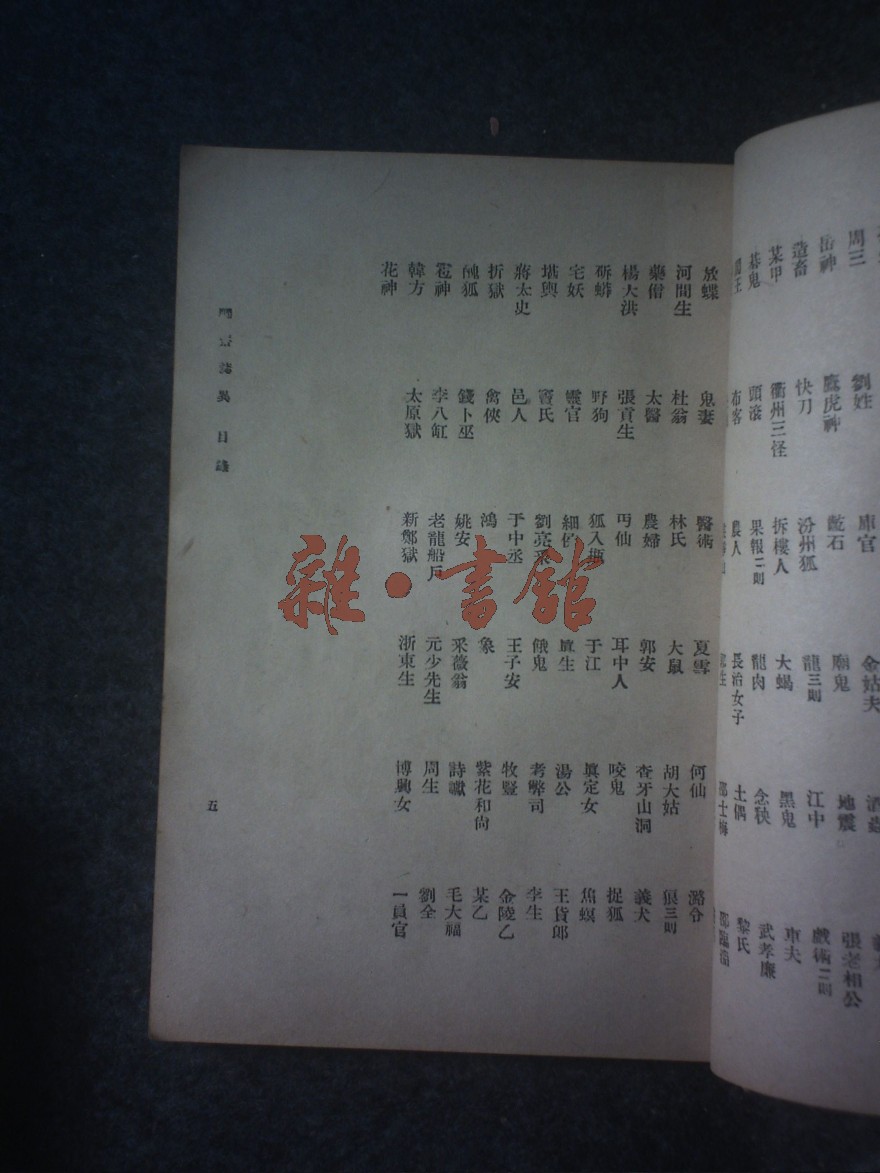 周三 劉姓 庫官 金姑夫 酒蟲
岳神 鷹虎神 齕石 廟鬼 地震 張老相公
造畜 快刀 汾州狐 龍三則 江中 戲術二則
某甲 衢州三怪 拆樓人 大蝎 黑鬼 車夫
棊鬼 頭滾 果報二則 龍肉 念秧 武孝廉
閻王 布客 農人 長治女子 土偶 黎氏
邵士梅 邵臨淄
放蝶 鬼妻 醫術 夏雪 何仙 潞令
河間生 杜翁 林氏 大鼠 胡大姑 狼三則
藥僧 太醫 農婦 郭安 查牙山洞 義犬
楊大洪 張貢生 丐仙 耳中人 咬鬼 捉狐
斫蟒 野狗 狐入瓶 于江 眞定女 焦螟
宅妖 靈官 細侯 眞生 湯公 王貨郎
堪輿 竇氏 劉亮采 餓鬼 考弊司 李生
蔣太史 邑人 于中丞 王子安 牧豎 金陵乙
折獄 禽俠 鴻 象 紫花和尙 某乙
醜狐 錢卜巫 姚安 采薇翁 詩讞 毛大福
雹神 李八缸 老龍船戶 元少先生 周生 劉全
韓方 太原獄 新鄭獄 浙東生 博興女 一員官
花神
聊齋誌異 目錄
五
雜·書館